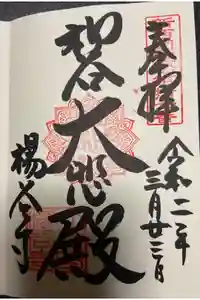 奉拝
令和二年
三月廿三日
柳谷大悲殿
楊谷寺